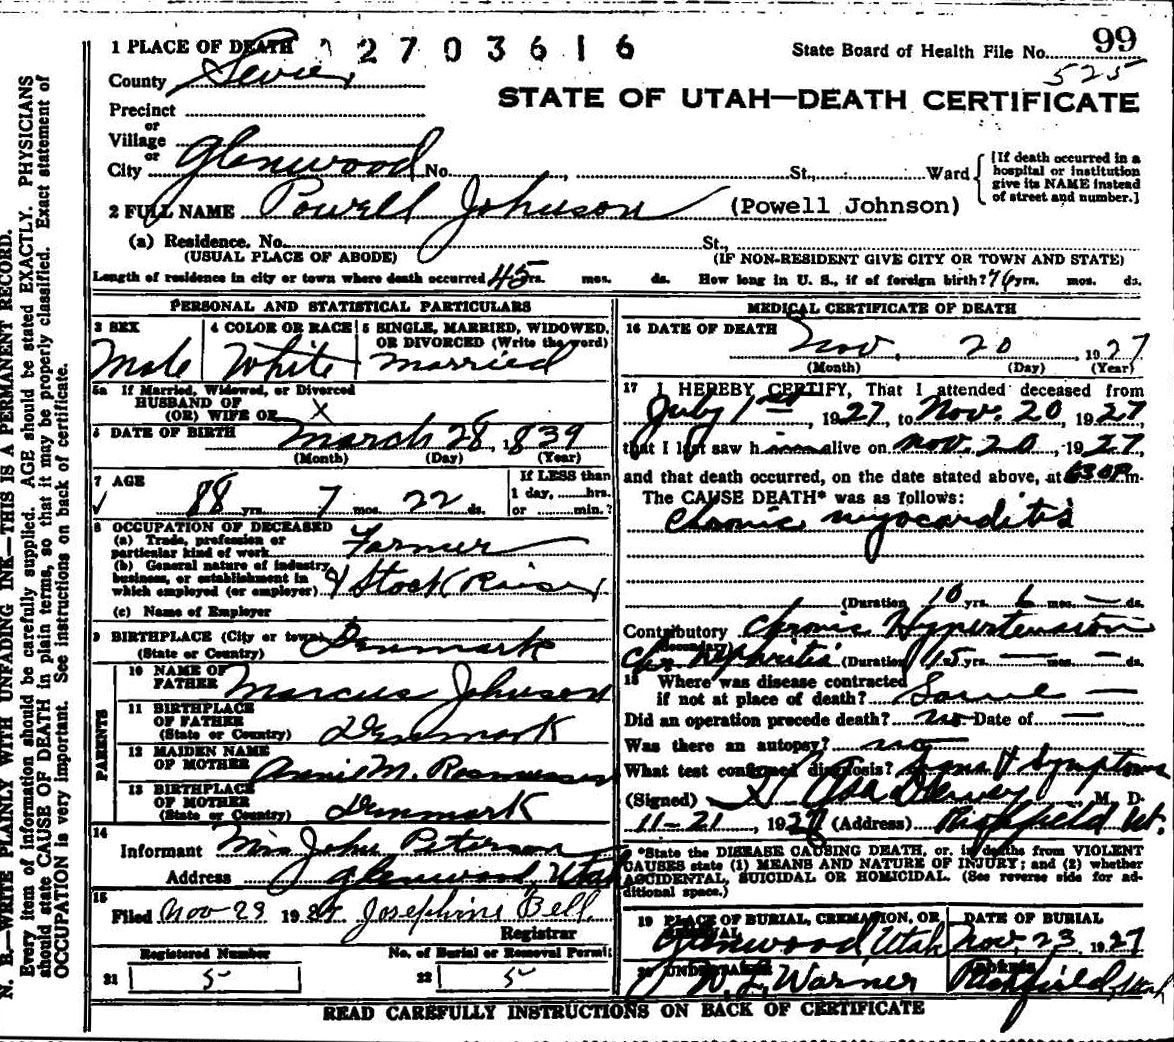 1 PLACE OF DEATH 2703616
State Board of Health File No. 99
County Sevier 525
STATE OF UTAH—DEATH CERTIFICATE
Precinct
or
Village
or
City Glenwood No. , St., Ward
[If death occurred in a
hospital or institution
give its NAME instead
of street and number.]
2 FULL NAME Powell Johnson (Powell Johnson)
(a) Residence. No. St.,
(USUAL PLACE OF ABODE) (IF NON-RESIDENT GIVE CITY OR TOWN AND STATE)
Length of residence in city or town where death occurred 45 yrs. mos. ds. How long in U. S., if of foreign birth? 76 yrs. mos. ds.
PERSONAL AND STATISTICAL PARTICULARS
3 SEX
Male
4 COLOR OR RACE
White
5 SINGLE, MARRIED, WIDOWED,
OR DIVORCED (Write the word)
Married
5a If Married, Widowed, or Divorced
HUSBAND OF
(OR) WIFE OF X
6 DATE OF BIRTH March 28, 1839
(Month) (Day) (Year)
7 AGE
88 yrs. 7 mos. 22 ds.
If LESS than
1 day, hrs.
or min.?
8 OCCUPATION OF DECEASED
(a) Trade, profession or
particular kind of work Farmer
(b) General nature of industry,
business, or establishment in
which employed (or employer) & Stock Raiser
(c) Name of Employer
9 BIRTHPLACE (City or town)
(State or Country) Denmark
PARENTS
10 NAME OF
FATHER Marcus Johnson
11 BIRTHPLACE
OF FATHER
(State or Country) Denmark
12 MAIDEN NAME
OF MOTHER Annie M. Rasmussen
13 BIRTHPLACE
OF MOTHER
(State or Country) Denmark
14
Informant Mrs John Peterson
Address Glenwood, Utah
15
Filed Nov 29 192 Josephine Bell
Registrar
Registered Number
21 5
No. of Burial or Removal Permit
22 5
MEDICAL CERTIFICATE OF DEATH
16 DATE OF DEATH
Nov. 20, 1927
(Month) (Day) (Year)
17 I HEREBY CERTIFY, That I attended deceased from
July 1st, 1927, to Nov. 20, 1927,
that I last saw him alive on Nov. 20, 1927,
and that death occurred, on the date stated above, at 630P m.
The CAUSE DEATH* was as follows:
Chronic myocarditis
(Duration) 10 yrs. 6 mos. — ds.
Contributory Chronic Hypertension
Secondary
Chr. Nephritis (Duration) 15 yrs. — mos. — ds.
18 Where was disease contracted
if not at place of death? Same —
Did an operation precede death? no Date of —
Was there an autopsy? no
What test confirmed diagnosis? Signs & Symptoms
(Signed) Asa Dewey, M. D.
11-21, 1927 (Address) Richfield Ut.
*State the DISEASE CAUSING DEATH, or, in deaths from VIOLENT
CAUSES state (1) MEANS AND NATURE OF INJURY; and (2) whether
ACCIDENTAL, SUICIDAL OR HOMICIDAL. (See reverse side for ad-
ditional space.)
19 PLACE OF BURIAL, CREMATION, OR
REMOVAL
Glenwood, Utah
DATE OF BURIAL
Nov. 23 1927
20 UNDERTAKER
N. L. Warner
ADDRESS
Richfield, Utah
READ CAREFULLY INSTRUCTIONS ON BACK OF CERTIFICATE
N. B.—WRITE PLAINLY WITH UNFADING INK—THIS IS A PERMANENT RECORD.
Every item of information should be carefully supplied. AGE should be stated EXACTLY. PHYSICIANS
should state CAUSE OF DEATH in plain terms, so that it may be properly classified. Exact statement of
OCCUPATION is very important. See instructions on back of certificate.